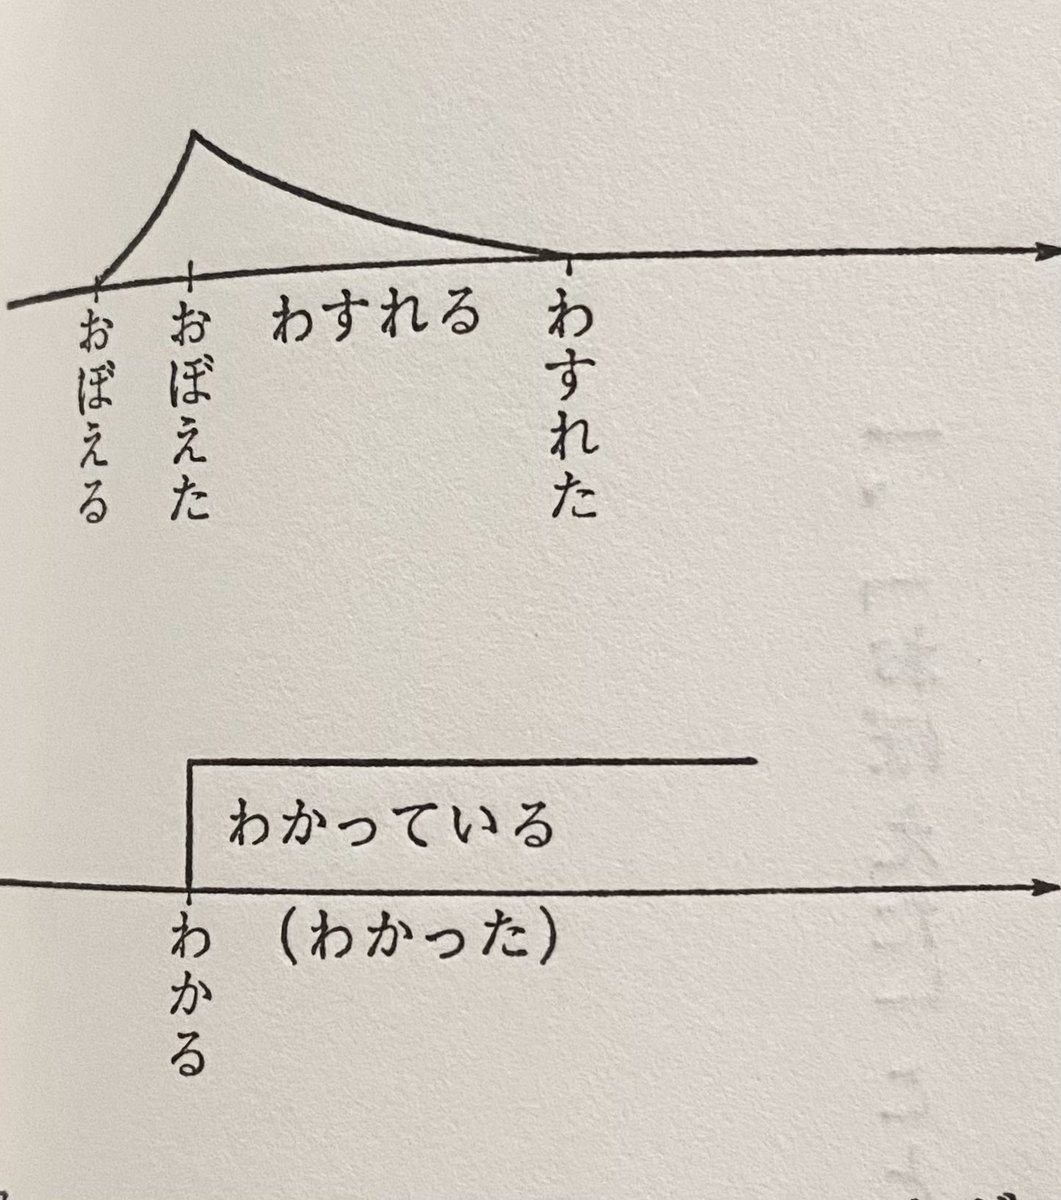 おぼえる
おぼえた
わすれる
わすれた
わかっている
わかる
(わかった)